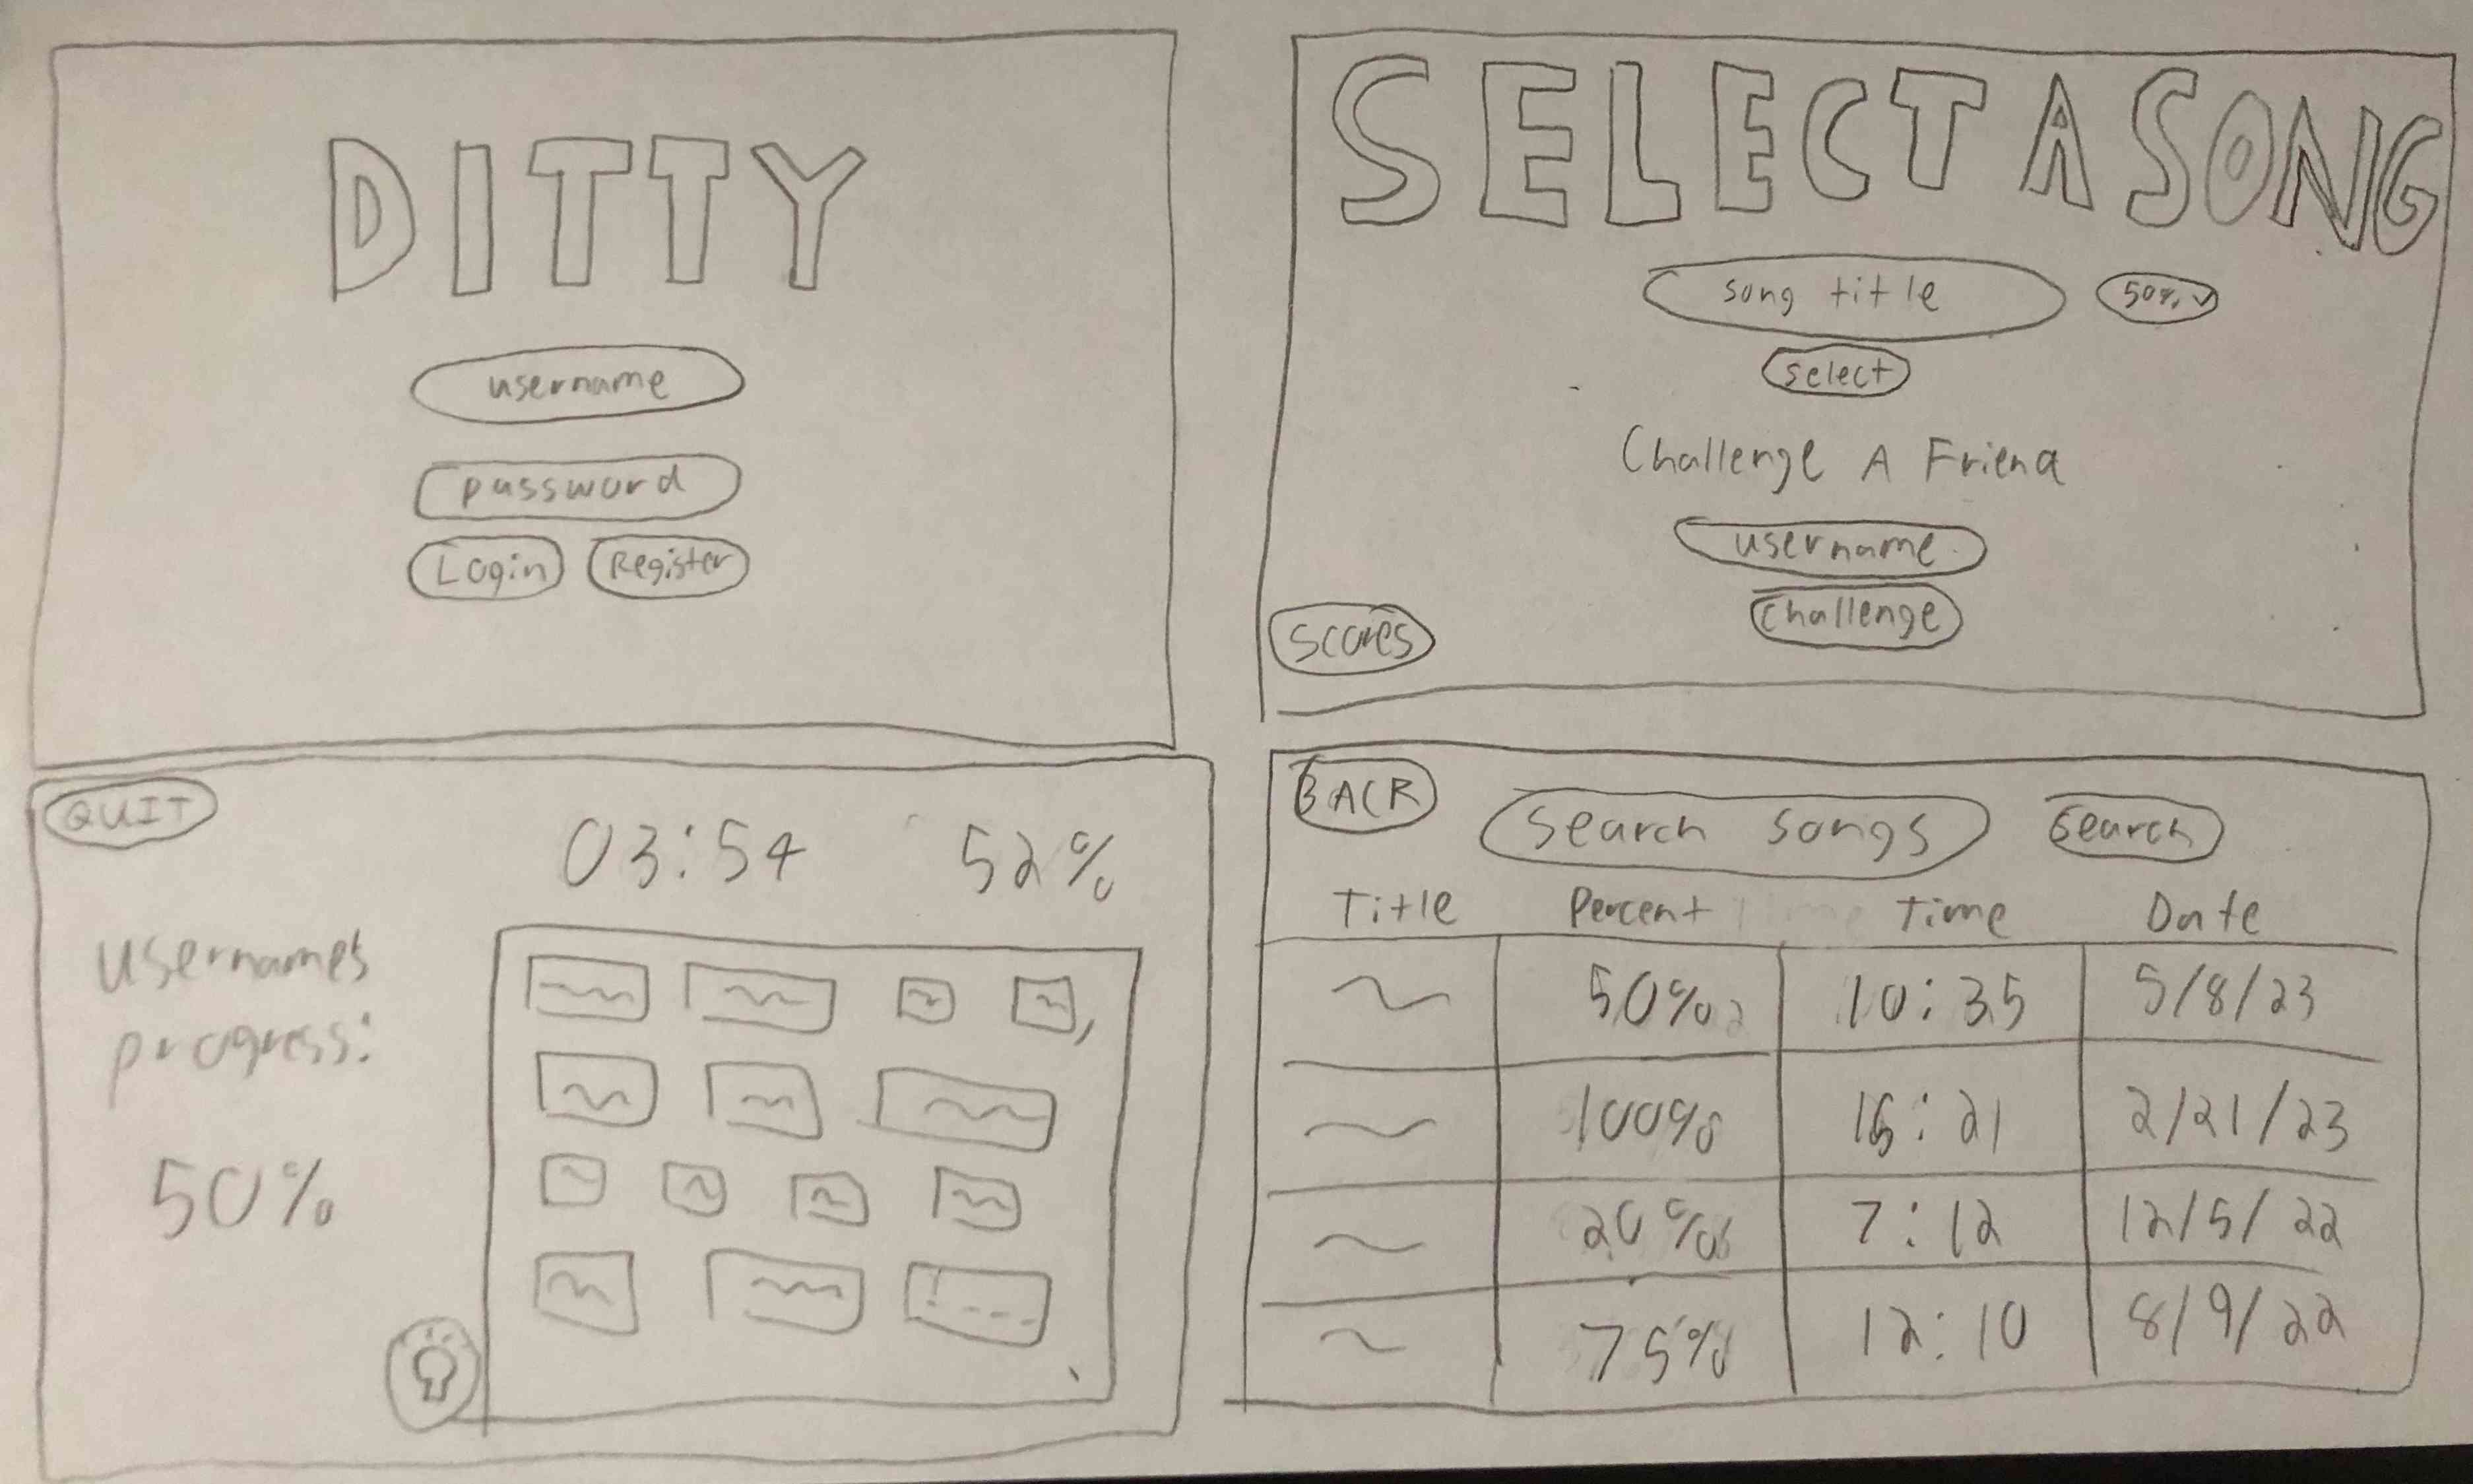 DITTY
username
password
Login Register
SELECT A SONG
song title 50%
select
Challenge A Friend
username
Challenge
Scores
QUIT
03:54 52%
usernames
progress:
50%
BACK search songs search
Title Percent Time Date
50% 10:35 5/8/23
100% 16:21 2/21/23
20% 7:12 12/5/22
75% 12:10 8/9/22